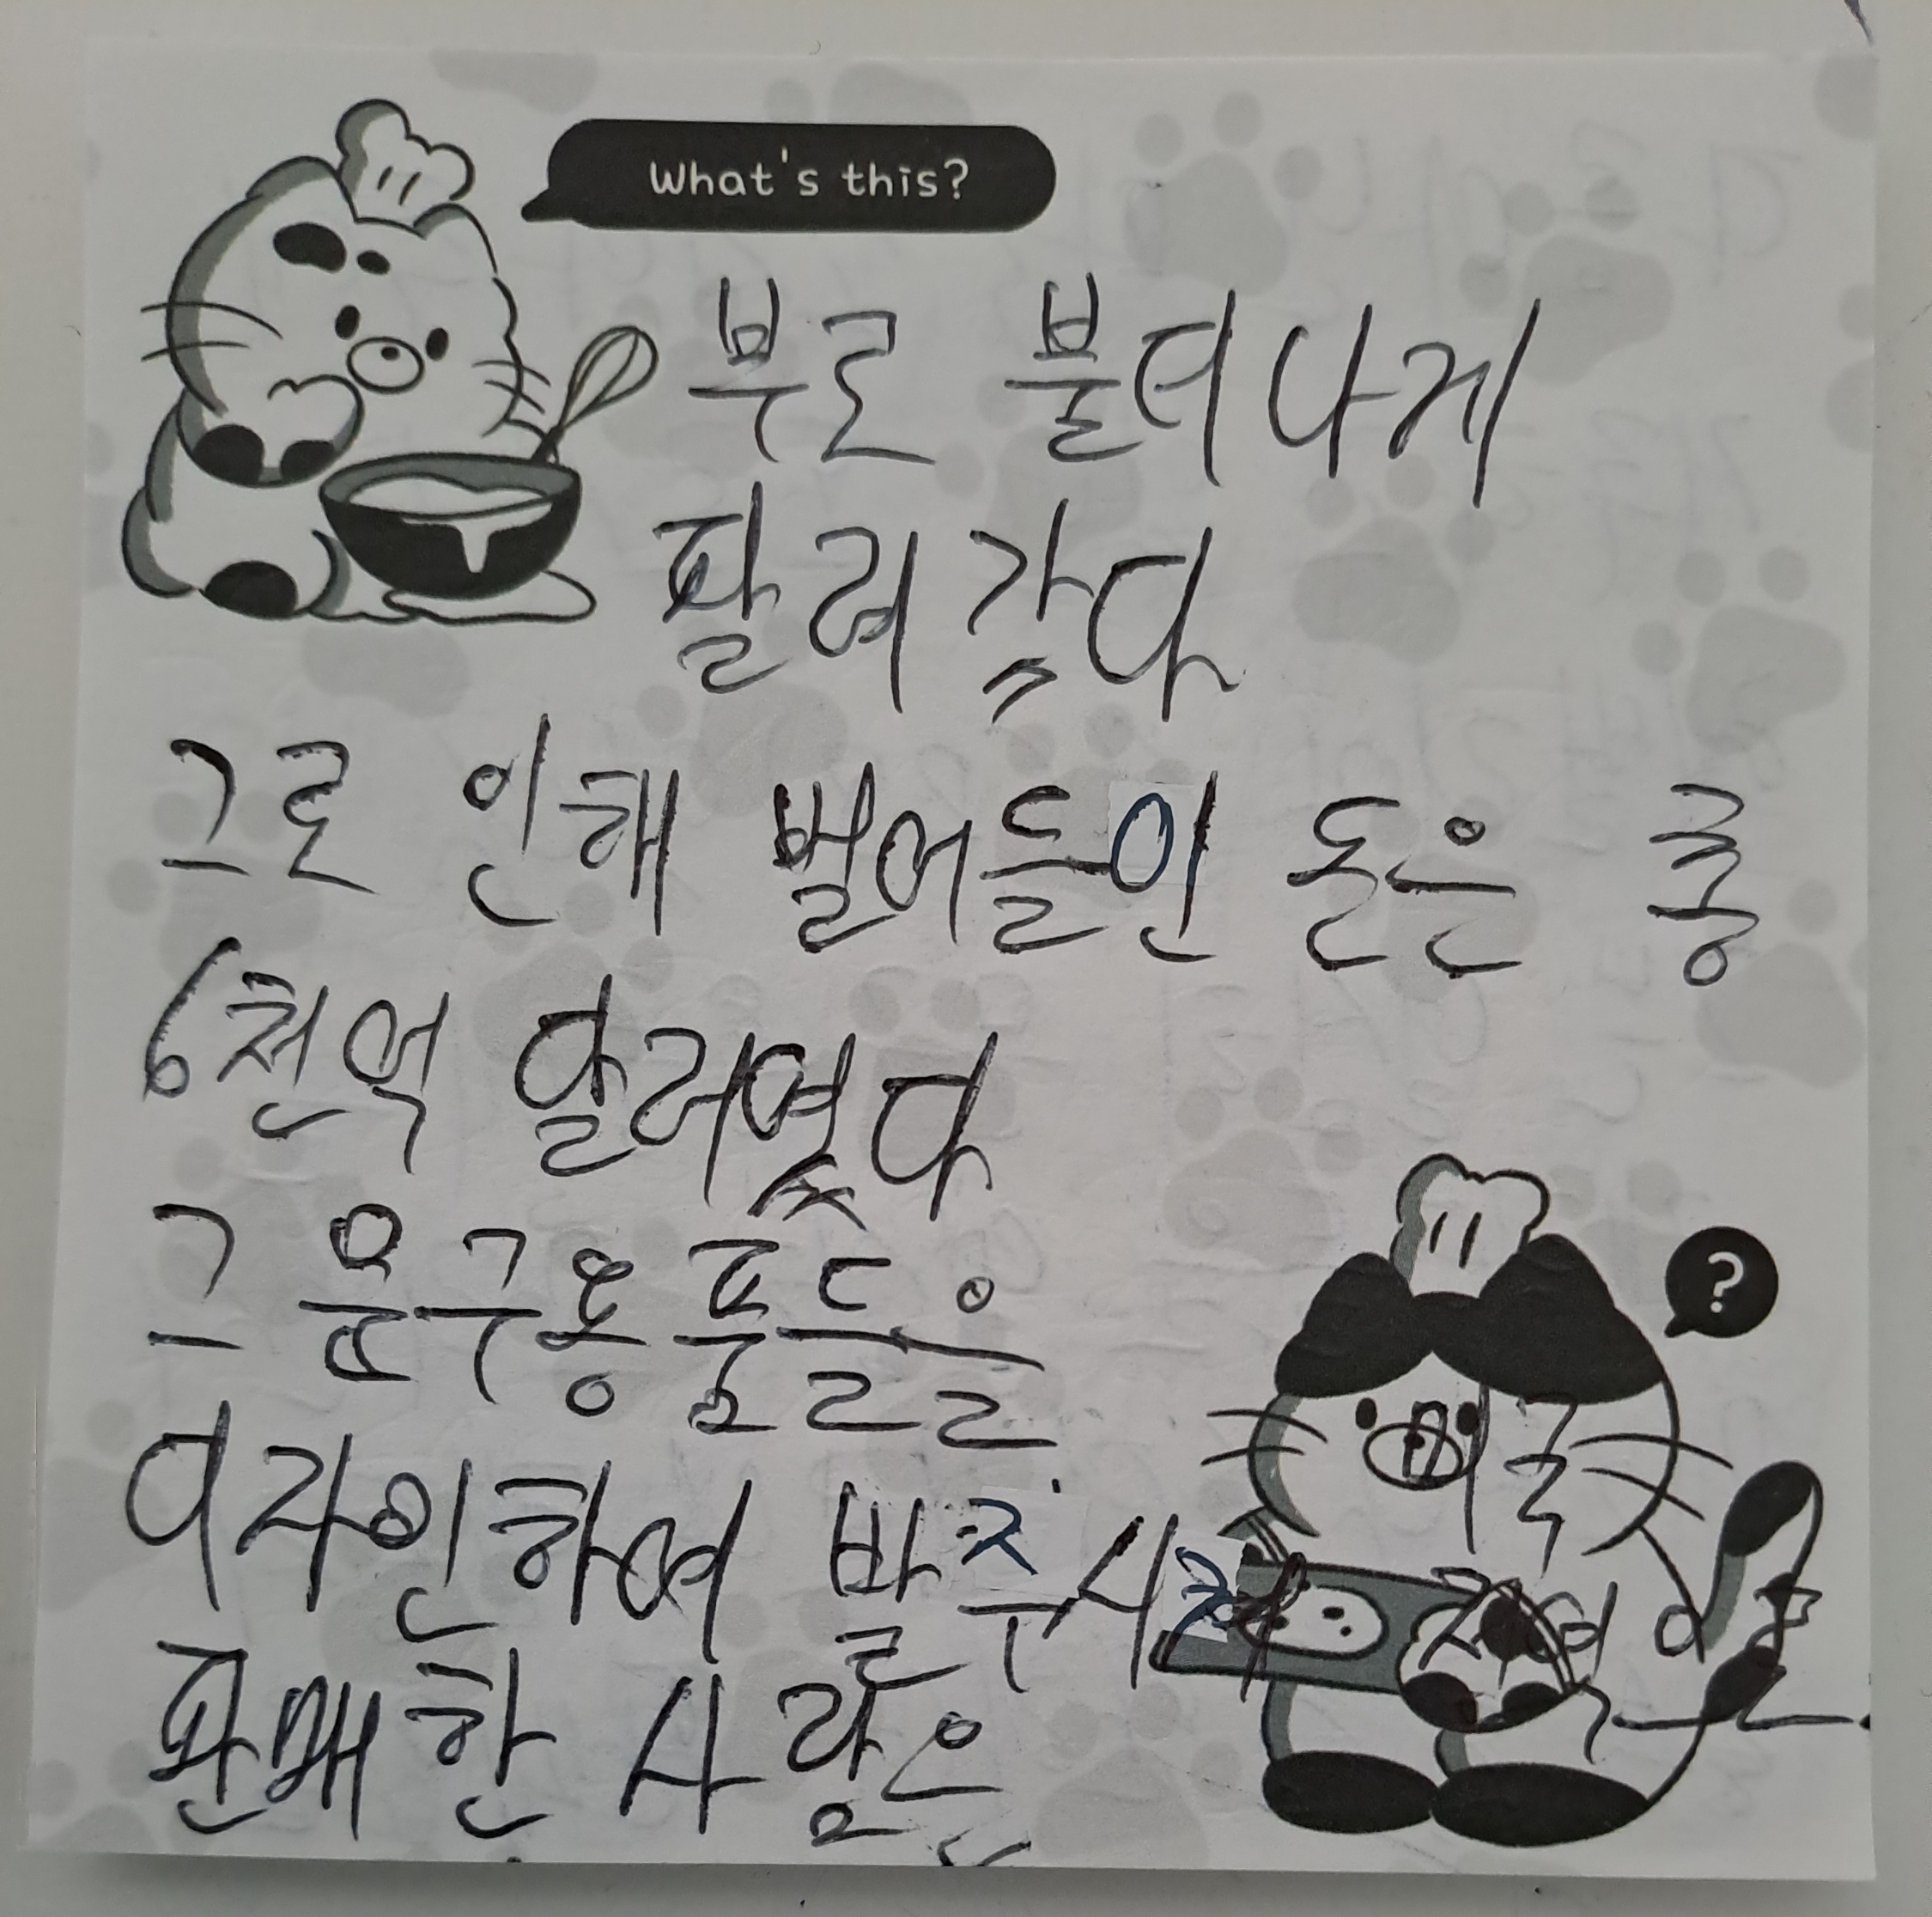 What's this?
부로 불터나게
팔려 갔다
그로 인해 벌어들인 돈은 총
6천억 달러였다
그 운구용품들을
?
디자인하여 발주시켜
판매한 사람은